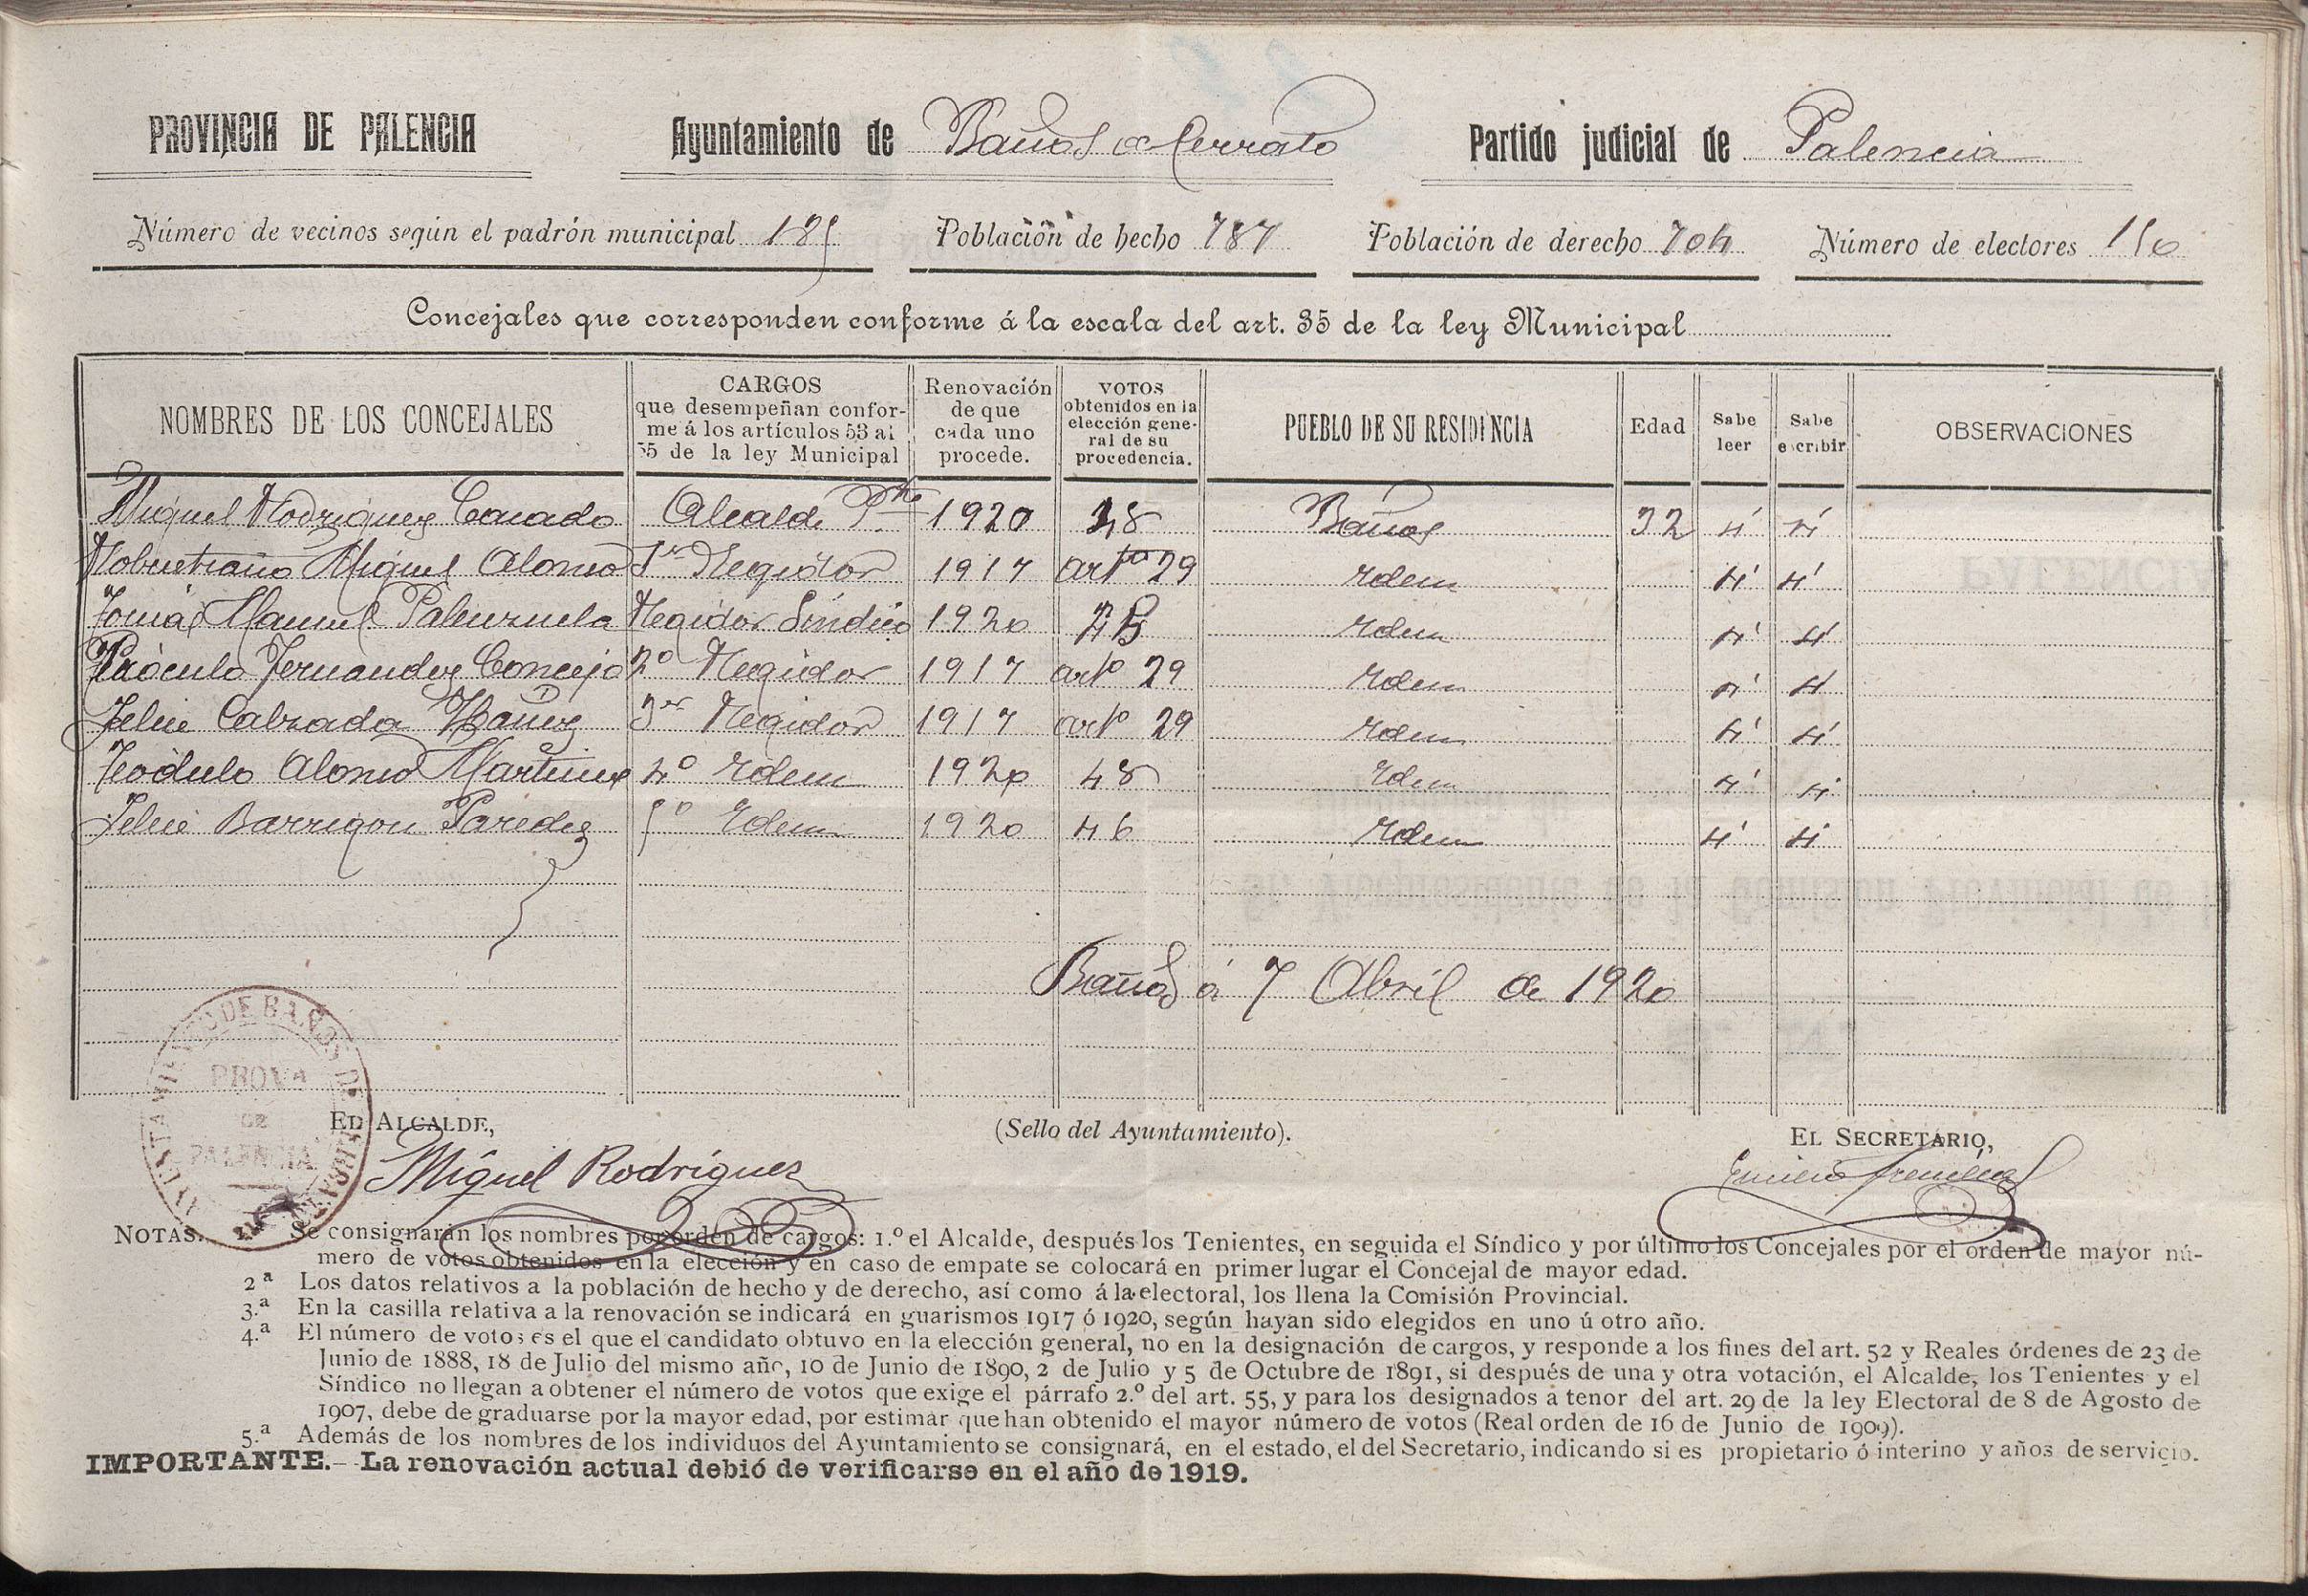 PROVINCIA DE PALENCIA Ayuntamiento de Baños de Cerrato Partido judicial de Palencia
Número de vecinos según el padrón municipal 185 Población de hecho 787 Población de derecho 704 Número de electores 150
Concejales que corresponden conforme á la escala del art. 35 de la ley Municipal
NOMBRES DE LOS CONCEJALES CARGOS que desempeñan conforme á los artículos 53 al 55 de la ley Municipal Renovación de que cada uno procede. VOTOS obtenidos en la elección general de su procedencia. PUEBLO DE SU RESIDENCIA Edad Sabe leer Sabe escribir OBSERVACIONES
Miguel Rodriguez Alcalde Pte 1920 48 Baños 32 sí sí
Miguel Alonso 1er Regidor 1917 arto 29 Idem sí sí
Tomás Manuel Palenzuela Regidor Síndico 1920 Idem sí sí
Próculo Fernandez Concejo 2º Regidor 1917 arto 29 Idem sí sí
Felix Calzada Ibañez 3er Regidor 1917 arto 29 Idem sí sí
Teódulo Alonso Martinez 4º Idem 1920 48 Idem sí sí
Felix Barrigon Paredes 5º Idem 1920 46 Idem sí sí
Baños á 7 Abril de 1920
AYUNTAMIENTO DE BAÑOS DE CERRATO
PROVA
DE
PALENCIA
EL ALCALDE, (Sello del Ayuntamiento). EL SECRETARIO,
Miguel Rodriguez
NOTAS. Se consignarán los nombres por orden de cargos: 1.º el Alcalde, después los Tenientes, en seguida el Síndico y por último los Concejales por el orden de mayor nú-
mero de votos obtenidos en la elección y en caso de empate se colocará en primer lugar el Concejal de mayor edad.
2ª Los datos relativos a la población de hecho y de derecho, así como á la electoral, los llena la Comisión Provincial.
3.ª En la casilla relativa a la renovación se indicará en guarismos 1917 ó 1920, según hayan sido elegidos en uno ú otro año.
4.ª El número de votos es el que el candidato obtuvo en la elección general, no en la designación de cargos, y responde a los fines del art. 52 y Reales órdenes de 23 de
Junio de 1888, 18 de Julio del mismo año, 10 de Junio de 1890, 2 de Julio y 5 de Octubre de 1891, si después de una y otra votación, el Alcalde, los Tenientes y el
Síndico no llegan a obtener el número de votos que exige el párrafo 2.º del art. 55, y para los designados a tenor del art. 29 de la ley Electoral de 8 de Agosto de
1907, debe de graduarse por la mayor edad, por estimar que han obtenido el mayor número de votos (Real orden de 16 de Junio de 1909).
5.ª Además de los nombres de los individuos del Ayuntamiento se consignará, en el estado, el del Secretario, indicando si es propietario ó interino y años de servicio.
IMPORTANTE.- La renovación actual debió de verificarse en el año de 1919.